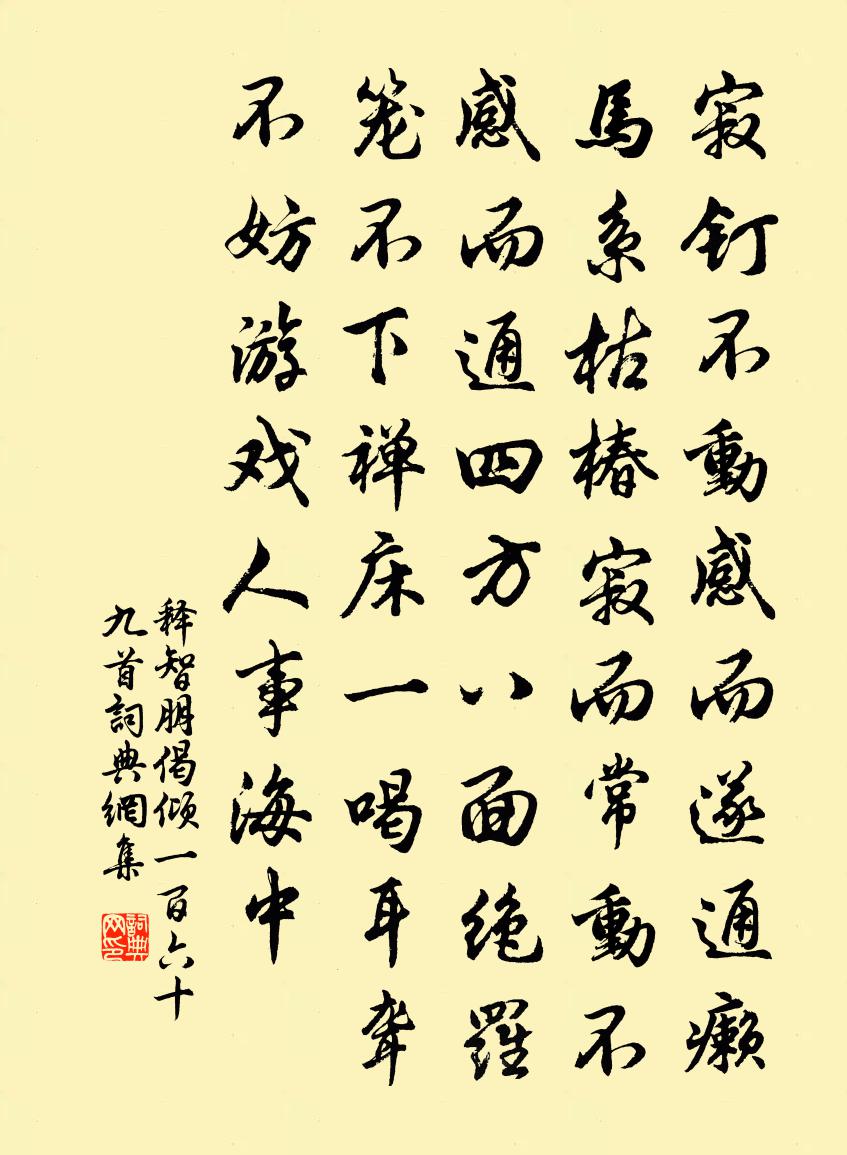 寂钉不動感而遂通癞
馬系枯椿寂而常動不
感而通四方八面绝羅
笼不下禅床一喝耳聋
不妨游戏人事海中
释智朋偈倾一百六十
九首詞典網集
詞典
网印